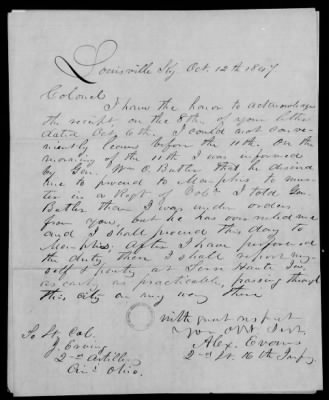 Louisville Ky Oct. 12th 1847
Colonel
I have the honor to acknowledge
the receipt, on the 8th of your letter
dated Oct 6th. I could not conve-
niently leave before the 11th. On the
morning of the 11th I was informed
by Gen. Wm O. Butler that he desired
me to proceed to Memphis to mus-
ter in a Regt of I told Gen
Butler that I was under orders
from you, but he has overruled me
and I shall proceed this day to
Memphis. After I have performed
the duty there I shall report my-
self & party at Terre Haute Ind.
as early as practicable, passing through
this city on my way there
With great respect
Your Obt Servt
Alex. Evans
2nd Lt. 16th Infy
To Lt. Col.
J. Erving
2nd Artillery
Cin. Ohio.